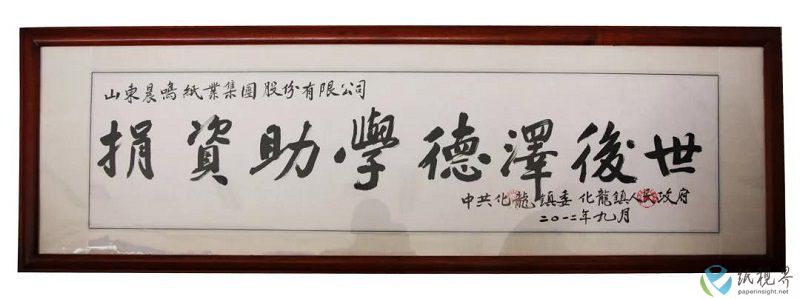 山東晨鳴紙業集團股份有限公司
捐資助學德澤後世
中共化龍鎮委 化龍鎮人民政府
二〇一二年九月
纸视界
paperinsight.net